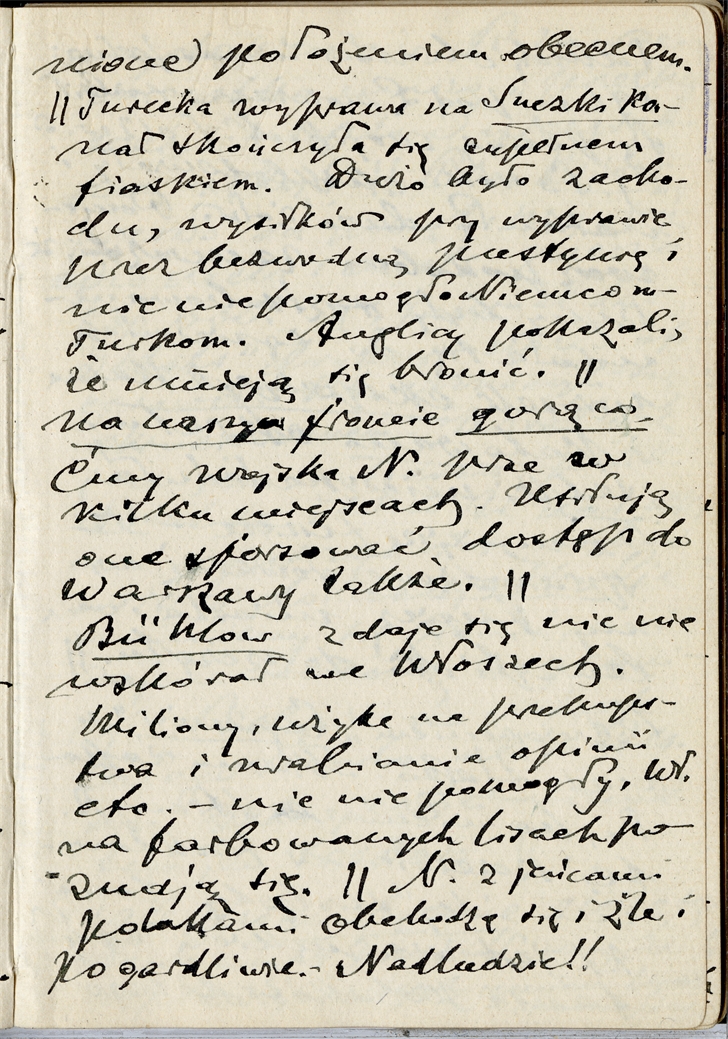 nione) położeniem obecnem.
|| Turecka wyprawa na Suezki ka-
nał skończyła się zupełnem
fiaskiem. Dużo było zacho-
du, wysiłków przy wyprawie
przez bezwodną pustynię i
nic nie pomogło Niemcom-
Turkom. Anglicy pokazali,
że umieją się bronić. ||
Na naszym froncie gorąco.
Ćmy wojska N. prze w
kilku miejscach. Usiłują
one sforsować dostęp do
Warszawy także. ||
Bühlow zdaje się nic nie
wskórał we Włoszech.
Miliony, użyte na przekups-
twa i urabianie opinii
etc. – nic nie pomogły. Wł.
na farbowanych lisach po-
znają się. || N. z jeńcami
polakami obchodzą się i źle i
pogardliwie. – Nadludzie!!